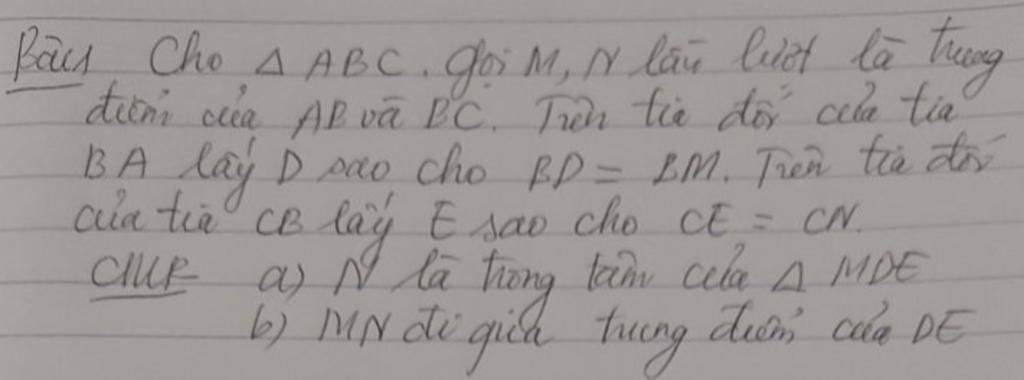 Bài 1 Cho △ ABC. gọi M, N lần lượt là trung
điểm của AB và BC. Trên tia đối của tia
BA lấy D sao cho BD = BM. Trên tia đối
của tia CB lấy E sao cho CE = CN.
CMR a) N là trọng tâm của △ MDE
b) MN đi giữa trung điểm của DE